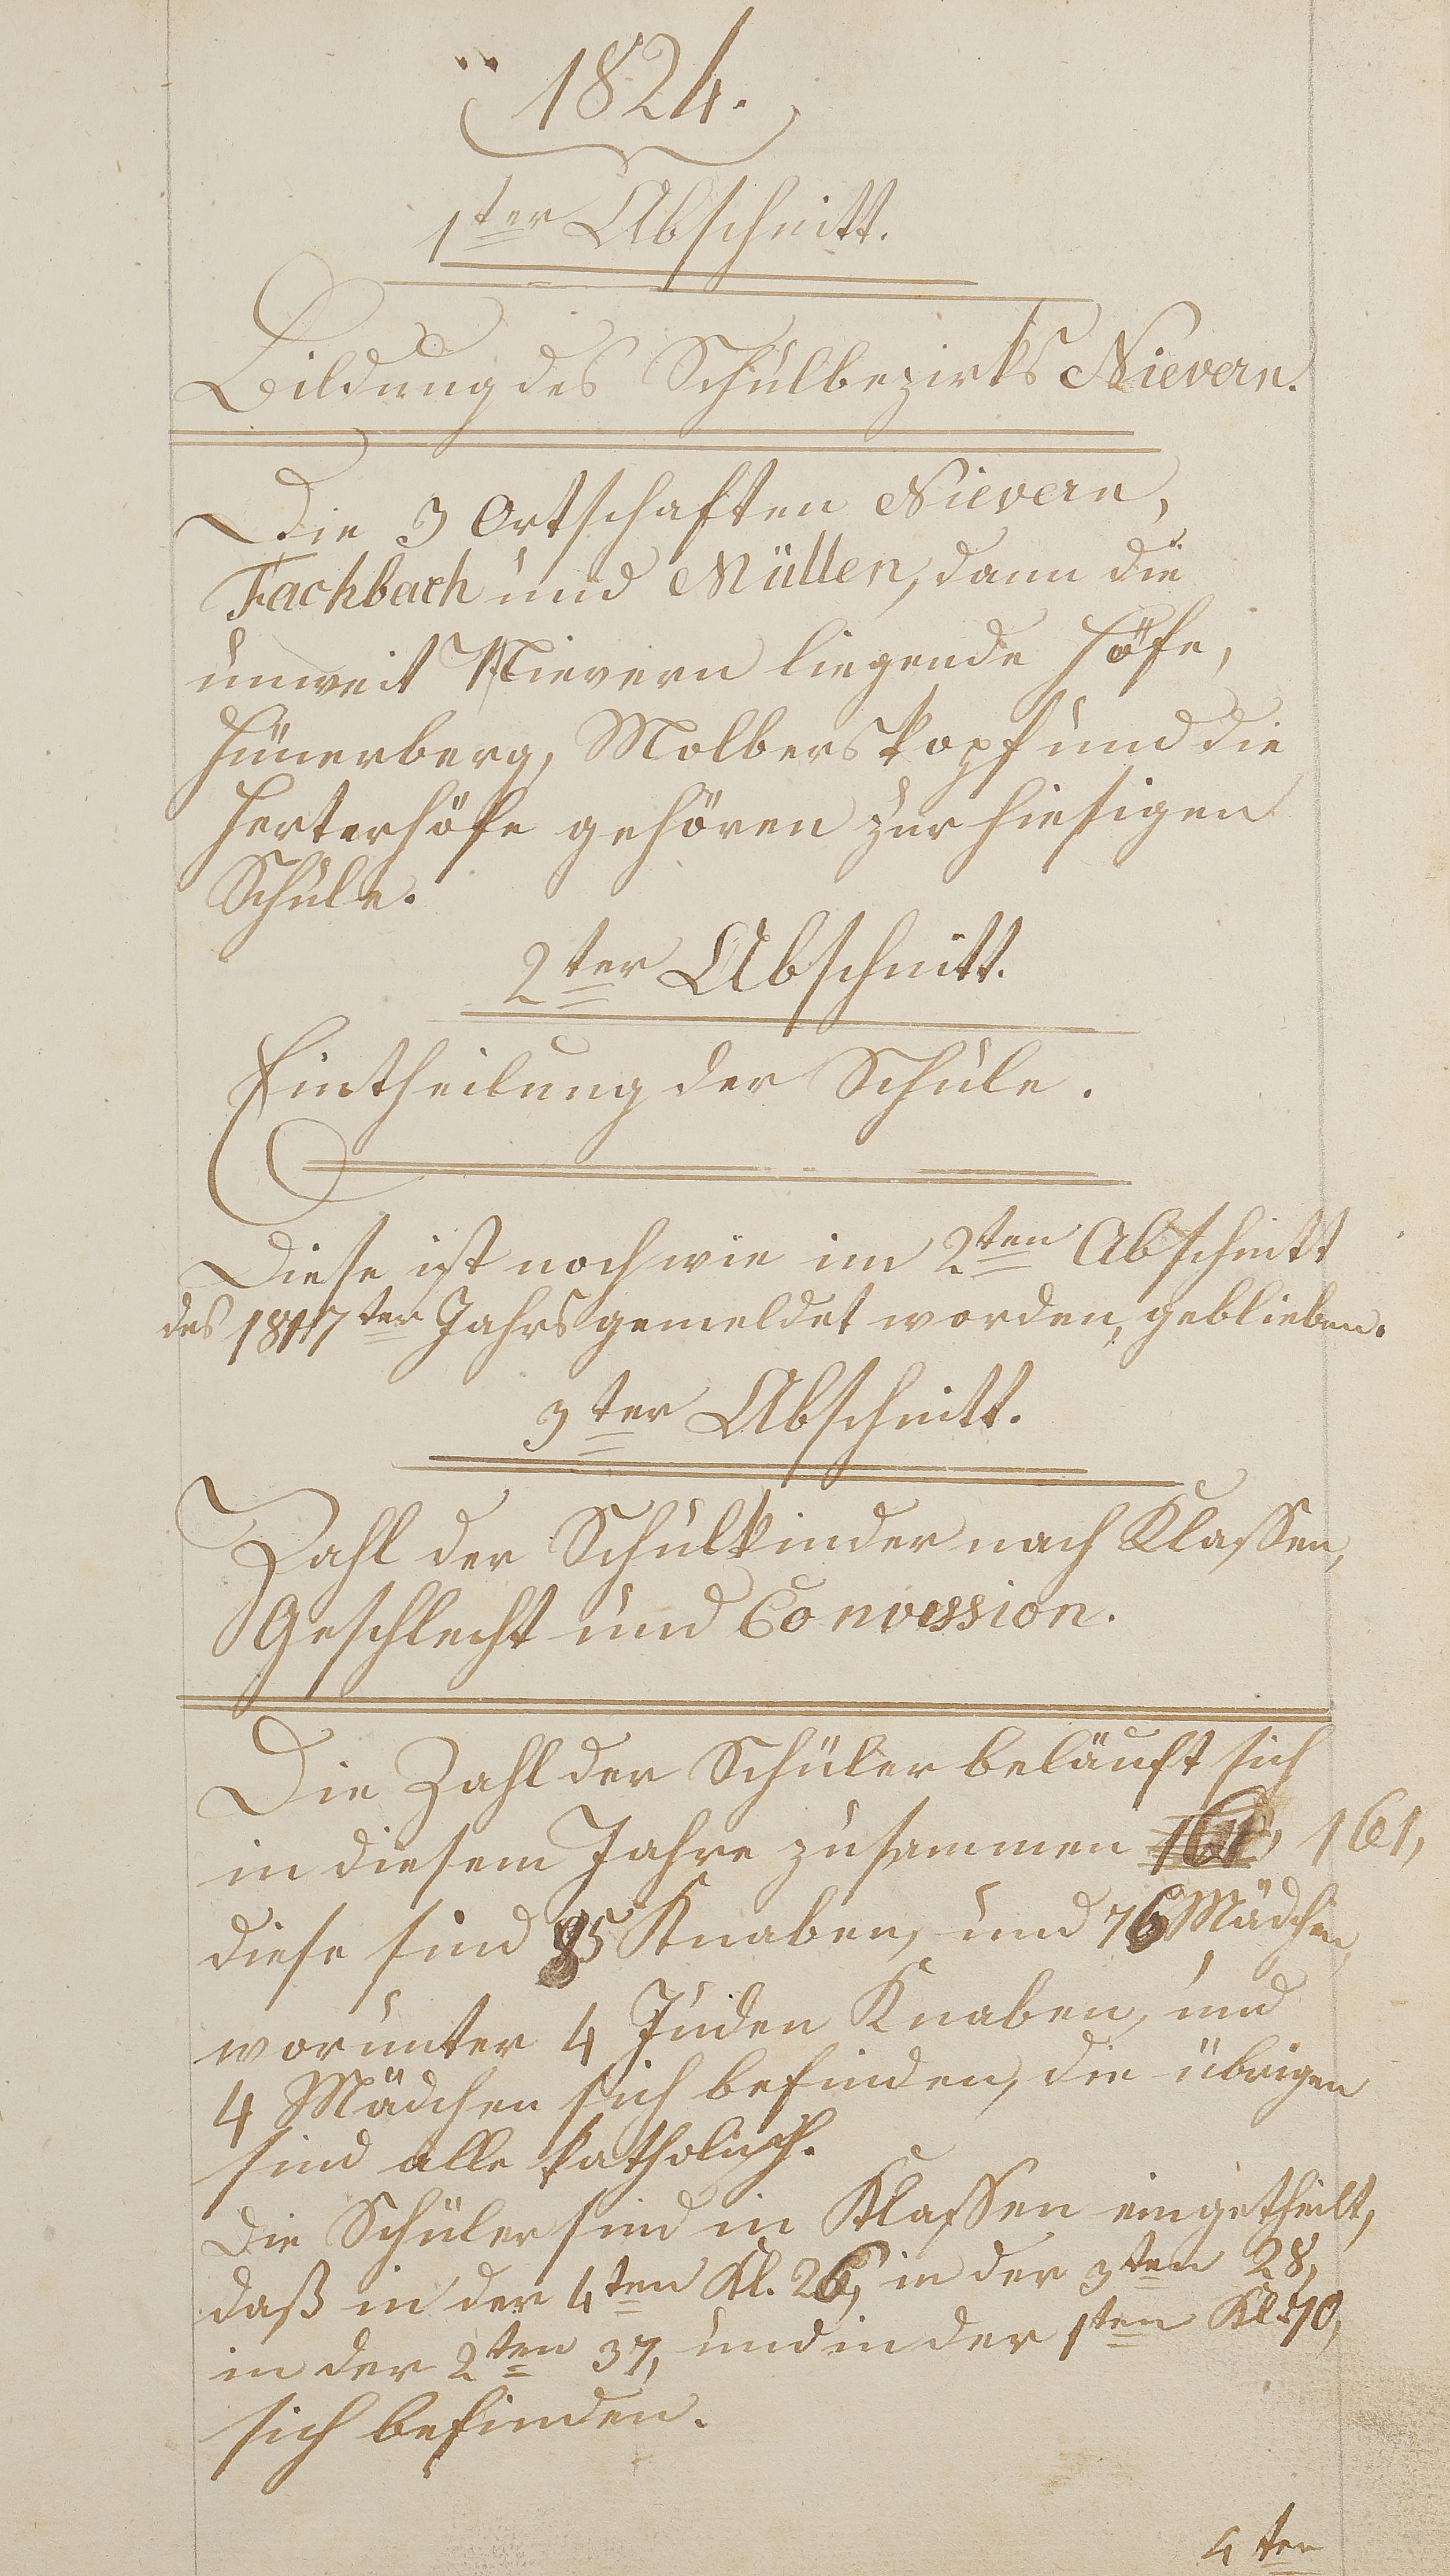 1824.
1ter Abschnitt.
Bildung des Schulbezirks Nievern.
Die 3 Ortschaften Nievern,
Fachbach und Müllen, dann die
unweit Nievern liegende Höfe,
Hünerberg, Molberskopf und die
Herterhöfe gehören zur hiesigen
Schule.
2ter Abschnitt.
Eintheilung der Schule.
Diese ist noch wie im 2ten Abschnitt
des 1817ter Jahrs gemeldet worden, geblieben.
3ter Abschnitt.
Zahl der Schulkinder nach Klassen,
Geschlecht und Convession.
Die Zahl der Schüler beläuft sich
in diesem Jahre zusammen 161,
diese sind 85 Knaben, und 76 Mädchen,
worunter 4 Juden Knaben, und
4 Mädchen sich befinden, die übrigen
sind alle katholisch.
Die Schüler sind in Klassen eingetheilt,
daß in der 4ten Kl. 26, in der 3ten 28,
in der 2ten 37, und in der 1ten Kl. 70,
sich befinden.
4ter